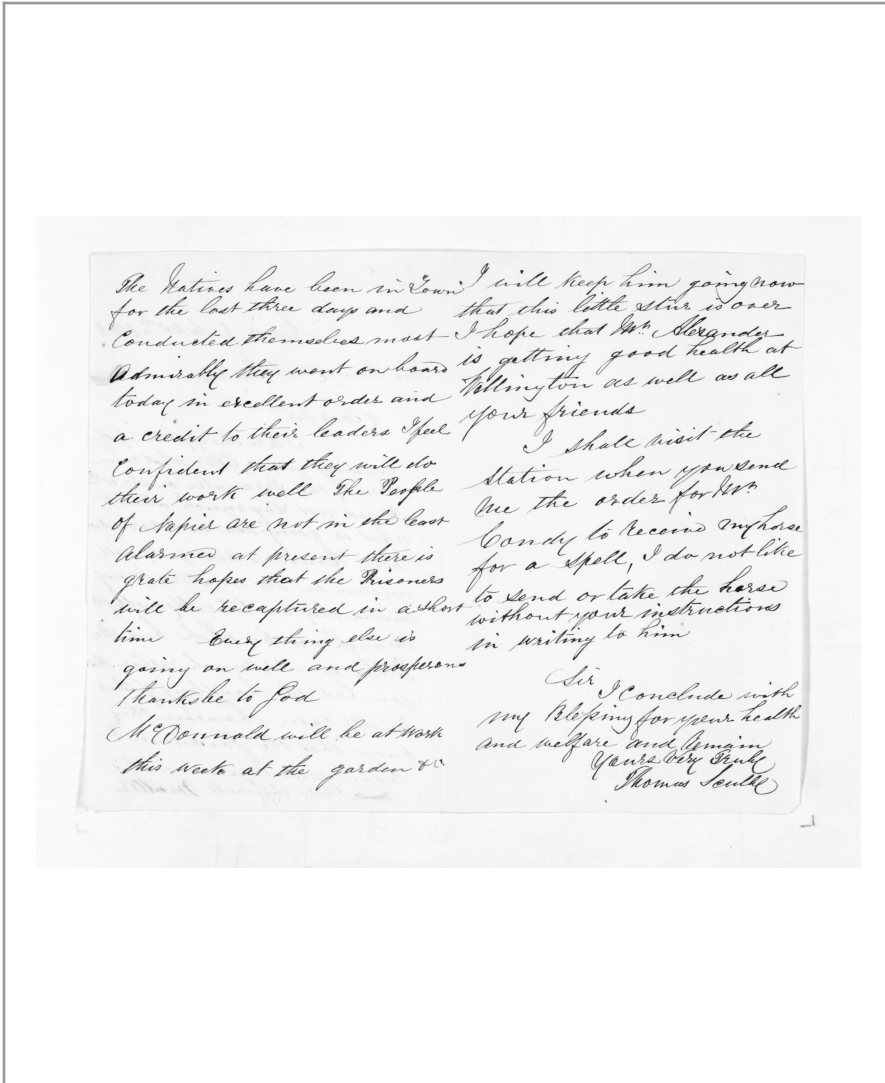 The Natives have been in Town
for the last three days and
Conducted themselves most
Admirably they went on board
today in excellent order and
a credit to their leaders I feel
Confident that they will do
their work well The People
of Napier are not in the least
Alarmed at present there is
grate hopes that the Prisoners
will be recaptured in a short
time Every thing else is
going on well and prosperous
thanks be to God
McDonnald will be at work
this week at the garden &c
I will keep him going now
that this little stur is over
I hope that Mrs Alexander
is getting good health at
Wellington as well as all
your friends
I shall visit the
Station when you send
me the order for Mr
Condy to Receive my horse
for a spell, I do not like
to send or take the horse
without your instructions
in writing to him
Sir
I Conclude with
my Blessing for your health
and welfare and Remain
Yours Very Truly
Thomas